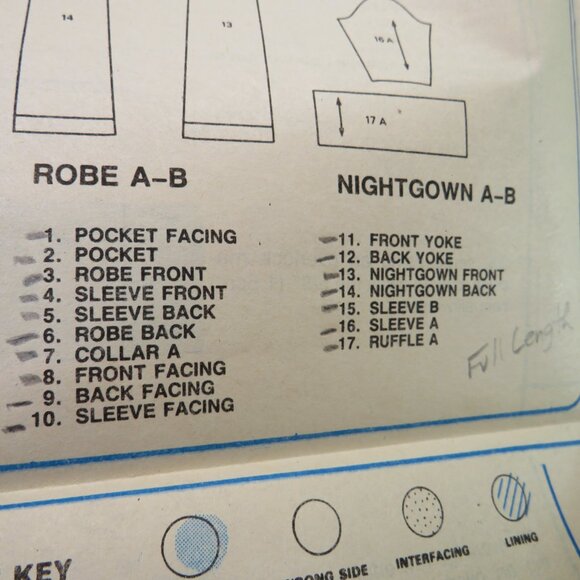 14
13
16 A
17 A
ROBE A–B
NIGHTGOWN A–B
1. POCKET FACING
2. POCKET
3. ROBE FRONT
4. SLEEVE FRONT
5. SLEEVE BACK
6. ROBE BACK
7. COLLAR A
8. FRONT FACING
9. BACK FACING
10. SLEEVE FACING
11. FRONT YOKE
12. BACK YOKE
13. NIGHTGOWN FRONT
14. NIGHTGOWN BACK
15. SLEEVE B
16. SLEEVE A
17. RUFFLE A
Full Length
KEY
SIDE
INTERFACING
LINING